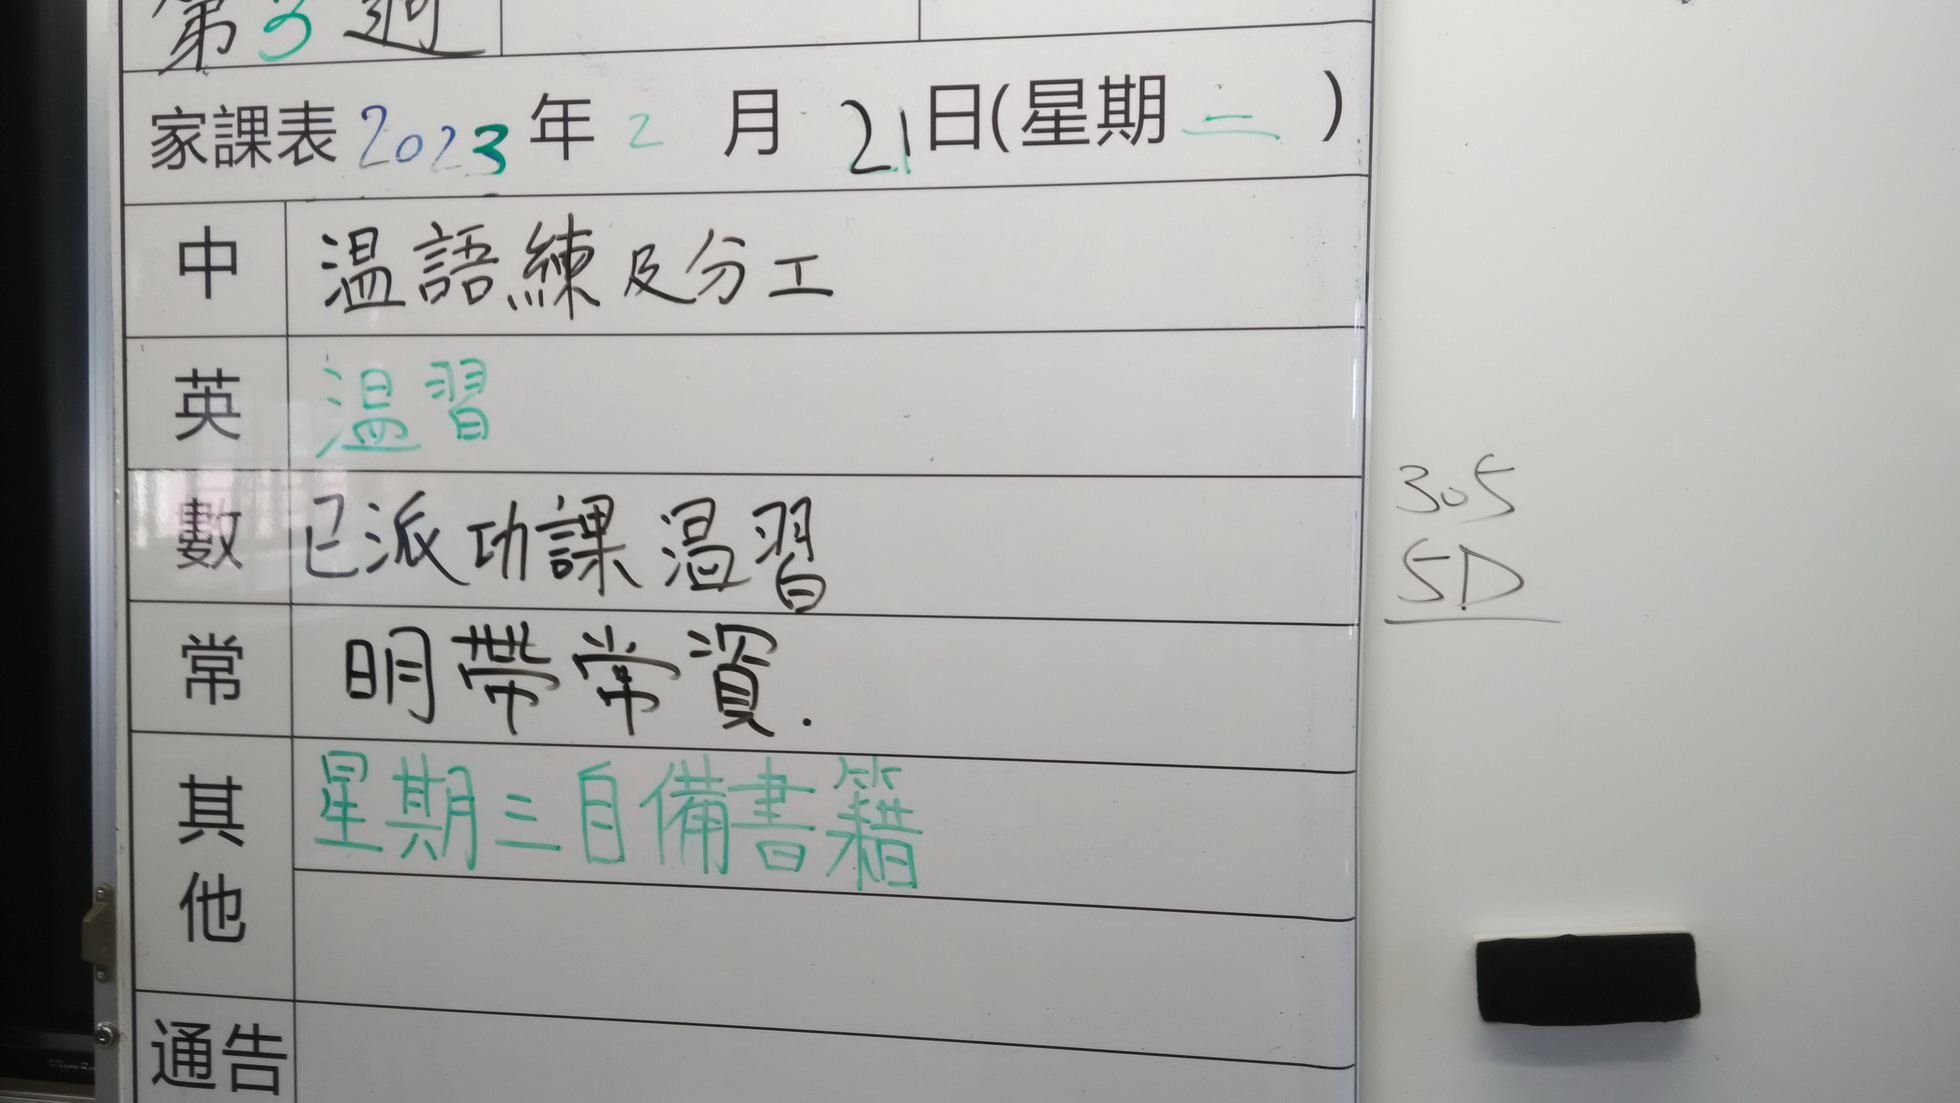 第3週
家課表 2023 年 2 月 21 日(星期二)
中 温語練及分工
英 温習
數 已派功課温習
常 明帶常資.
其他 星期三自備書籍
通告
305
5D